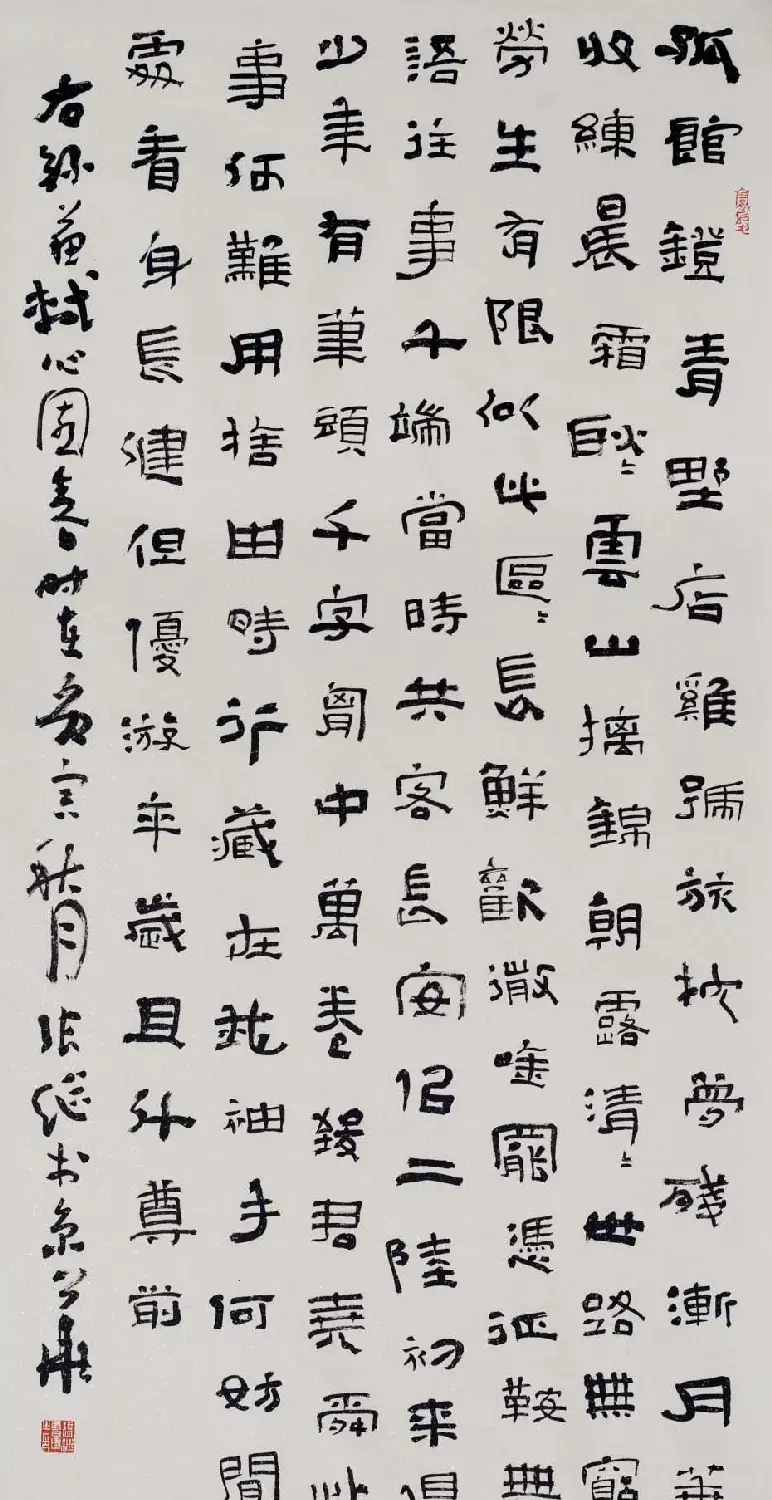 孤館鐙青野店雞號旅枕夢殘漸月華
收練晨霜耿〻雲山摛錦朝露清〻世路無窮
勞生有限似此區〻長鮮歡微唫罷憑征鞍無
語往事千端當時共客長安似二陸初來俱
少年有筆頭千字胷中萬卷致君堯舜此
事何難用捨由時行藏在我袖手何妨閒
處看身長健但優游卒歲且斗尊前
右錄蘇軾沁園春時在寅秋月張继书京華